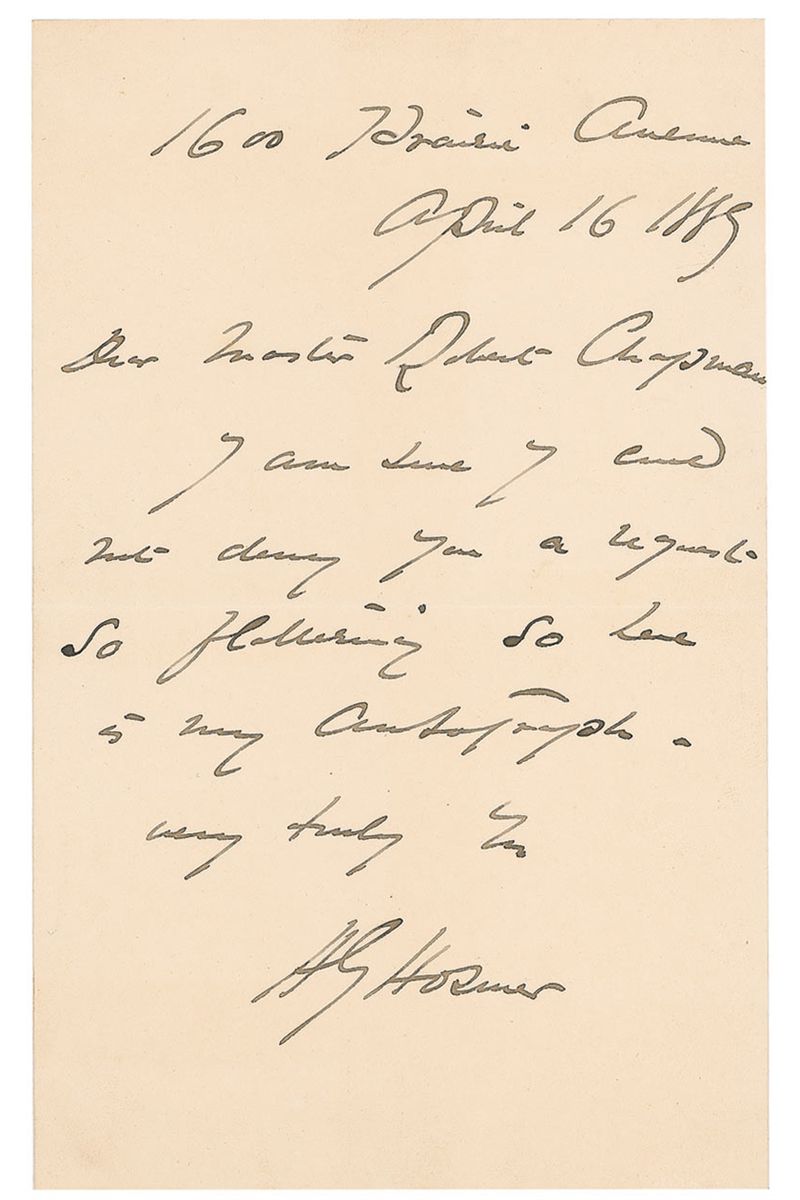 1600 Prairie Avenue
April 16 1889
Dear Master Robert Chapman
I am sure I could
not deny you a request
so flattering so here
is my autograph.
very truly Yrs
HG Hosmer